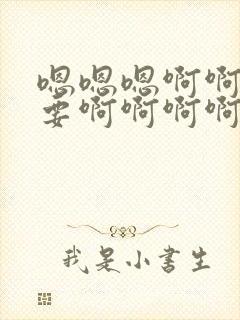 嗯嗯嗯啊啊
要啊啊啊啊
我是小书生